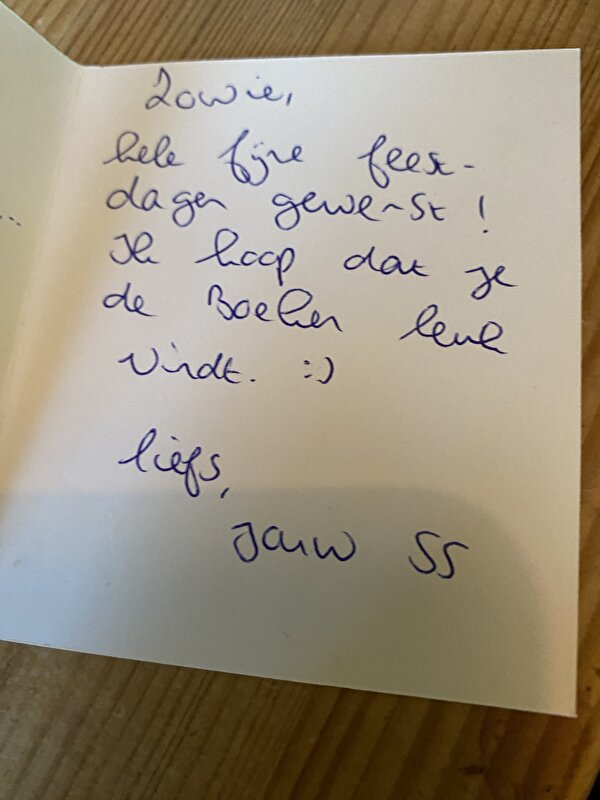 Lowie,
hele fijne feest-
dagen gewenst!
Ik hoop dat je
de Boeken leuk
vindt. :)
liefs,
Jouw SS